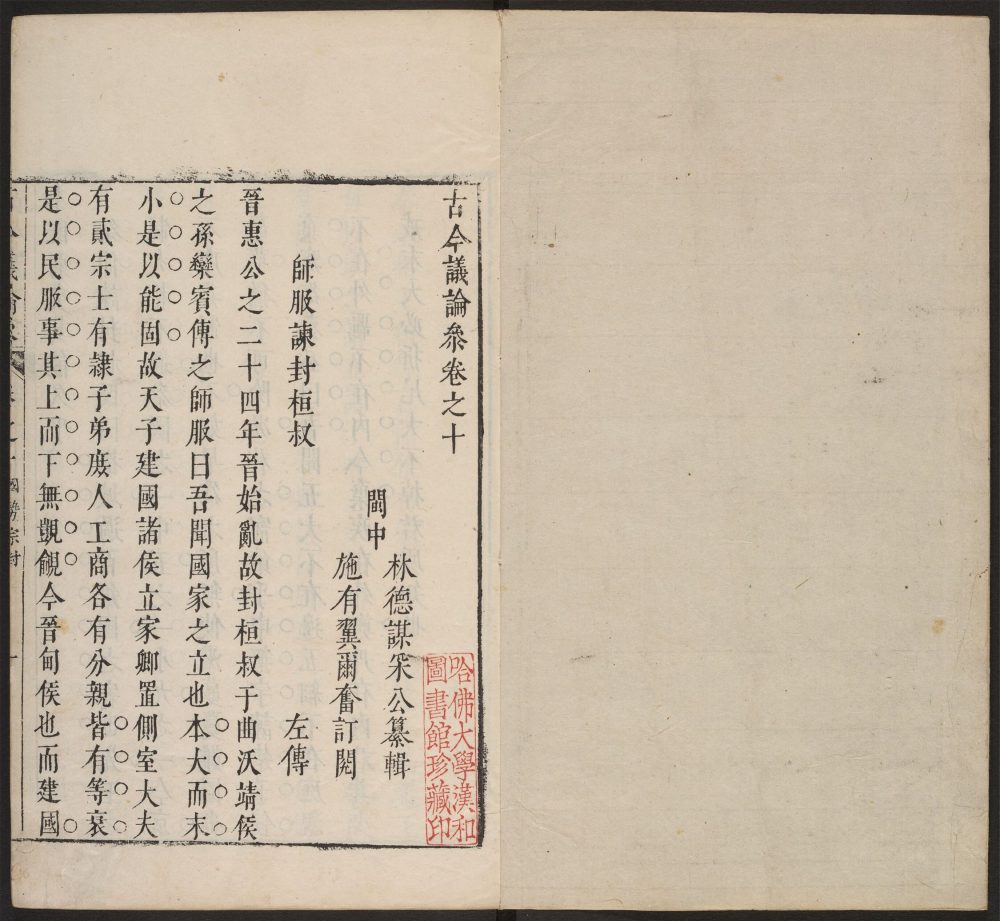 古今議論參卷之十
閩中
林德謀采公纂輯
施有翼爾奮訂閱
師服諫封桓叔
左傳
晉惠公之二十四年晉始亂故封桓叔于曲沃靖侯
之孫欒賓傅之師服曰吾聞國家之立也本大而末
小是以能固故天子建國諸侯立家卿置側室大夫
有貳宗士有隷子弟庻人工商各有分親皆有等衰
是以民服事其上而下無覬覦今晉甸侯也而建國
古今議論參
卷之十國勢宗封
一
哈佛大學漢和
圖書館珍藏印